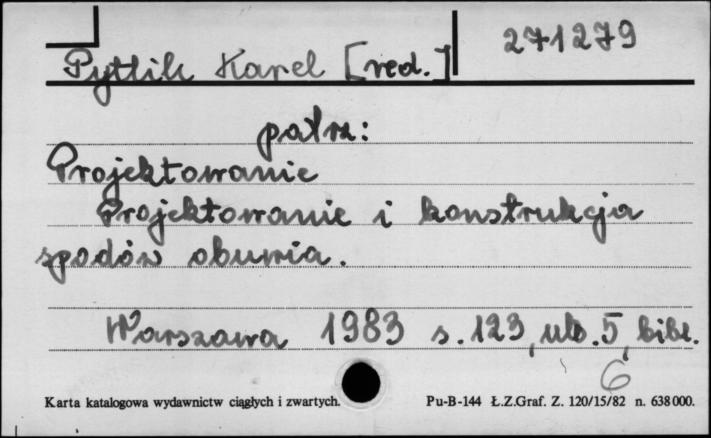 271279
Pytlik Karel [red.]
patrz:
Projektowanie
Projektowanie i konstrukcja
spodów obuwia.
Warszawa 1983 s. 123, ulb. 5, bibl.
6
Karta katalogowa wydawnictw ciągłych i zwartych. Pu-B-144 Ł.Z.Graf. Z. 120/15/82 n. 638000.